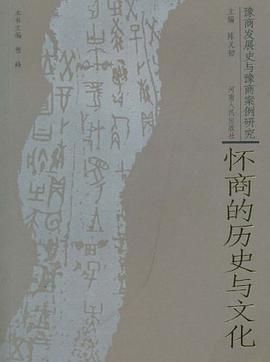 豫商发展史与豫商案例研究
主编 陈义初
河南人民出版社
怀商的历史与文化
本书主编 程峰